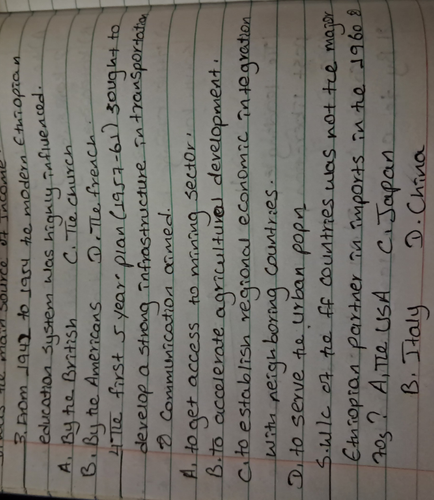 the main source of income.
3. From 1942 to 1954 the modern Ethiopian
education system was highly influenced.
A. By the British C. The church
B. By the Americans D. The french.
4. The first 5 year plan (1957-61) sought to
develop a strong infrastructure in transportation
& Communication aimed.
A. to get access to mining sector.
B. to accelerate agricultural development.
C. to establish regional economic integration
with neighboring countries.
D. to serve the urban popn
5. W/c of the ff countries was not the major
Ethiopian partner in imports in the 1960s
70s? A. The USA C. Japan
B. Italy D. China